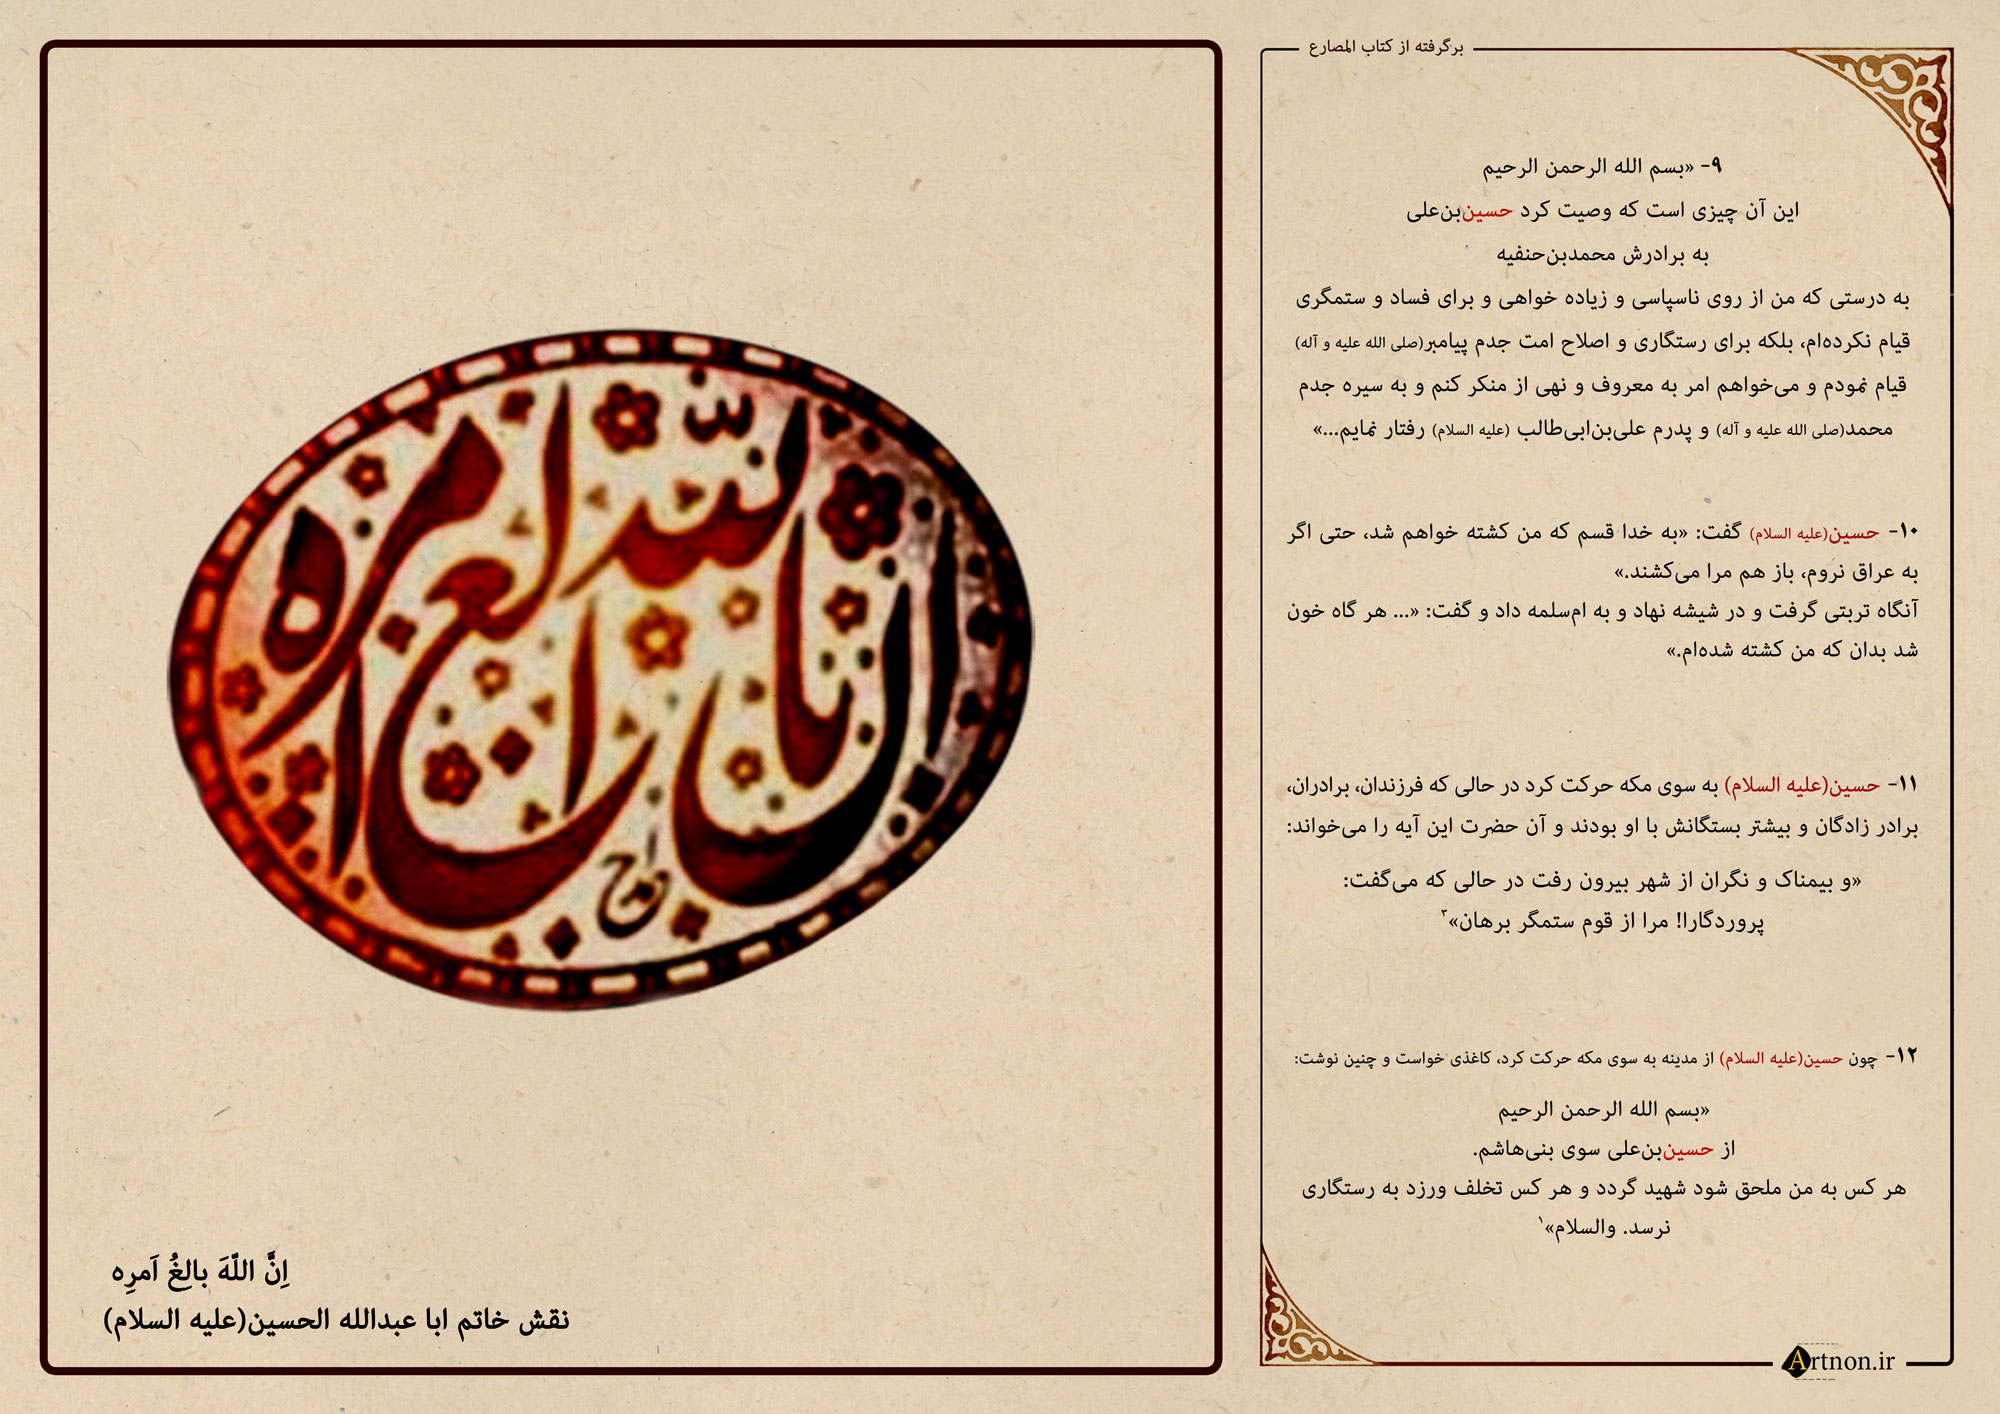 برگرفته از کتاب المصارع
۹- «بسم الله الرحمن الرحیم
این آن چیزی است که وصیت کرد حسین‌بن‌علی
به برادرش محمدبن‌حنفیه
به درستی که من از روی ناسپاسی و زیاده خواهی و برای فساد و ستمگری
قیام نکرده‌ام، بلکه برای رستگاری و اصلاح امت جدم پیامبر(صلی الله علیه و آله)
قیام نمودم و می‌خواهم امر به معروف و نهی از منکر کنم و به سیره جدم
محمد(صلی الله علیه و آله) و پدرم علی‌بن‌ابی‌طالب (علیه السلام) رفتار نمایم...»
۱۰- حسین(علیه السلام) گفت: «به خدا قسم که من کشته خواهم شد، حتی اگر
به عراق نروم، باز هم مرا می‌کشند.»
آنگاه تربتی گرفت و در شیشه نهاد و به ام‌سلمه داد و گفت: «... هر گاه خون
شد بدان که من کشته شده‌ام.»
۱۱- حسین(علیه السلام) به سوی مکه حرکت کرد در حالی که فرزندان، برادران،
برادر زادگان و بیشتر بستگانش با او بودند و آن حضرت این آیه را می‌خواند:
«و بیمناک و نگران از شهر بیرون رفت در حالی که می‌گفت:
پروردگارا! مرا از قوم ستمگر برهان»۳
۱۲- چون حسین(علیه السلام) از مدینه به سوی مکه حرکت کرد، کاغذی خواست و چنین نوشت:
«بسم الله الرحمن الرحیم
از حسین‌بن‌علی سوی بنی‌هاشم.
هر کس به من ملحق شود شهید گردد و هر کس تخلف ورزد به رستگاری
نرسد. والسلام»۱
Artnon.ir
اِنَّ اللّهَ بالغُ اَمرِه
نقش خاتم ابا عبدالله الحسین(علیه السلام)